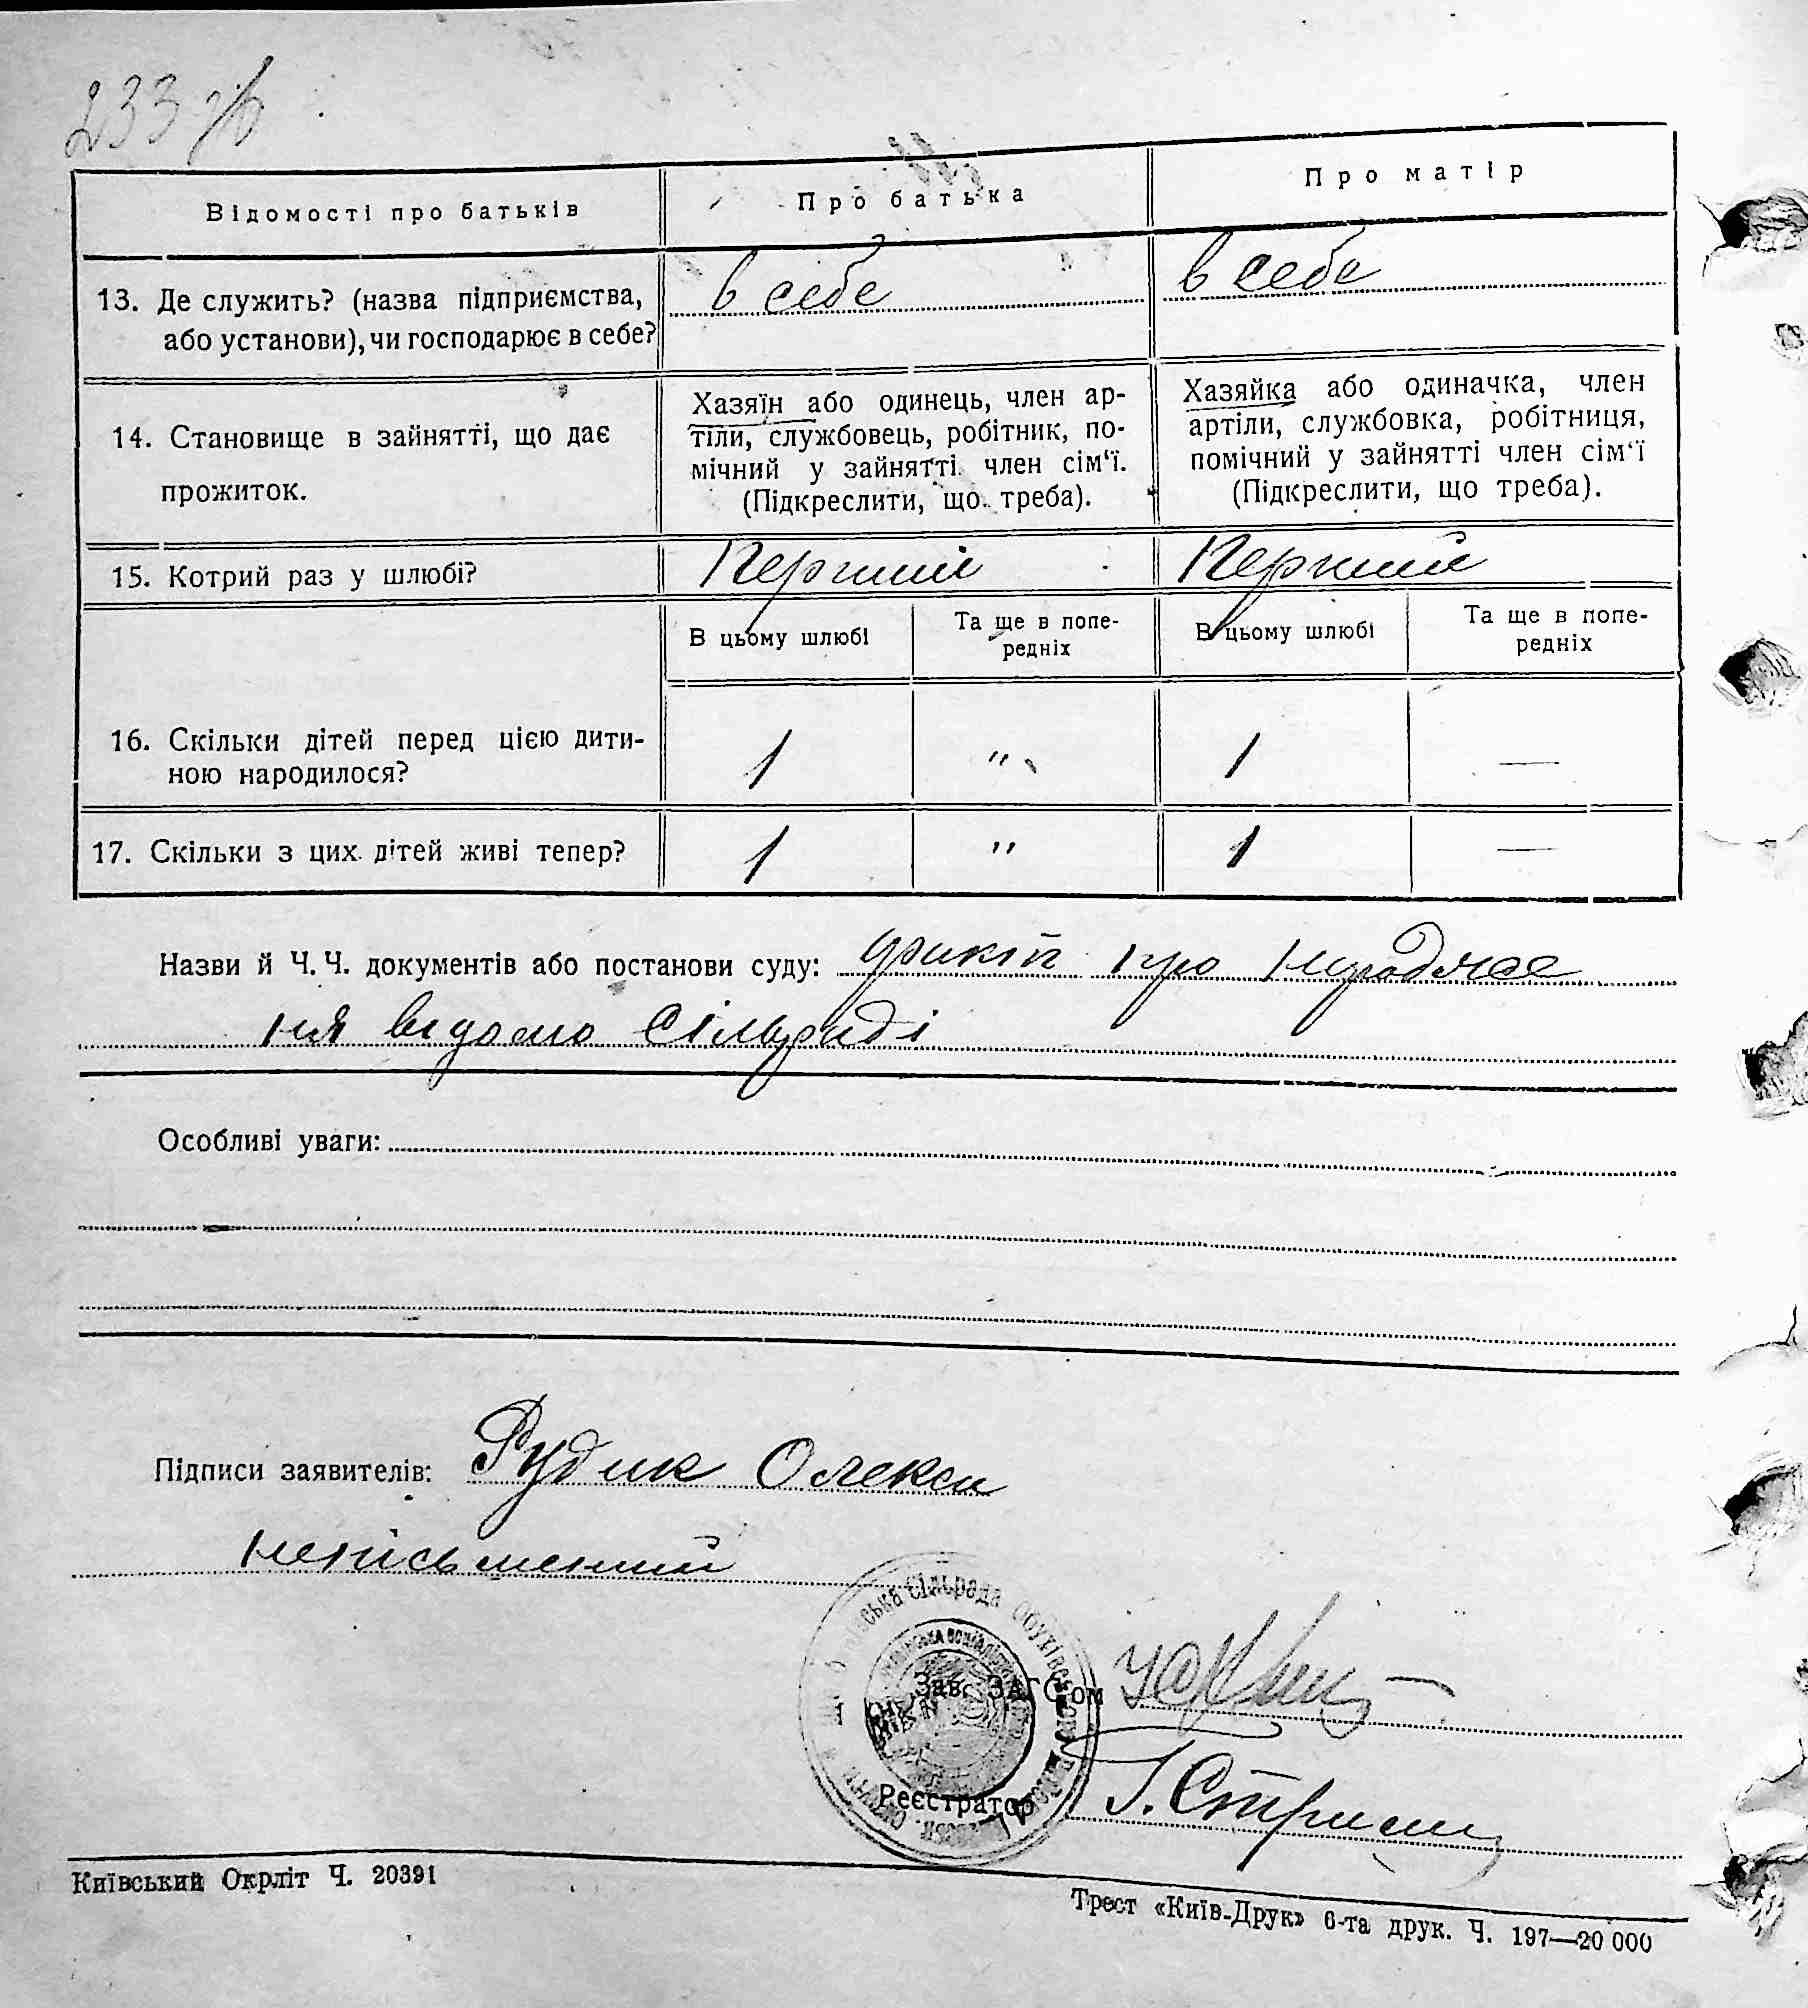 233 зв
Відомості про батьків
Про батька
Про матір
13. Де служить? (назва підприємства,
або установи), чи господарює в себе?
в себе
в себе
14. Становище в зайнятті, що дає
прожиток.
Хазяїн або одинець, член ар-
тіли, службовець, робітник, по-
мічний у зайнятті член сім‘ї.
(Підкреслити, що треба).
Хазяйка або одиначка, член
артіли, службовка, робітниця,
помічний у зайнятті член сім‘ї
(Підкреслити, що треба).
15. Котрий раз у шлюбі?
Перший
Перший
В цьому шлюбі
Та ще в попе-
редніх
В цьому шлюбі
Та ще в попе-
редніх
16. Скільки дітей перед цією дити-
ною народилося?
1
"
1
—
17. Скільки з цих дітей живі тепер?
1
"
1
—
Назви й Ч. Ч. документів або постанови суду: про народжен
ня відомо Сільраді
Особливі уваги:
Підписи заявителів: Рудик Олекси
неписьменний
Зав. ЗАГС'ом
Реєстратор
сільрада Обухівськ
Київський Окрліт Ч. 20391
Трест «Київ-Друк» 6-та друк. Ч. 197—20 000